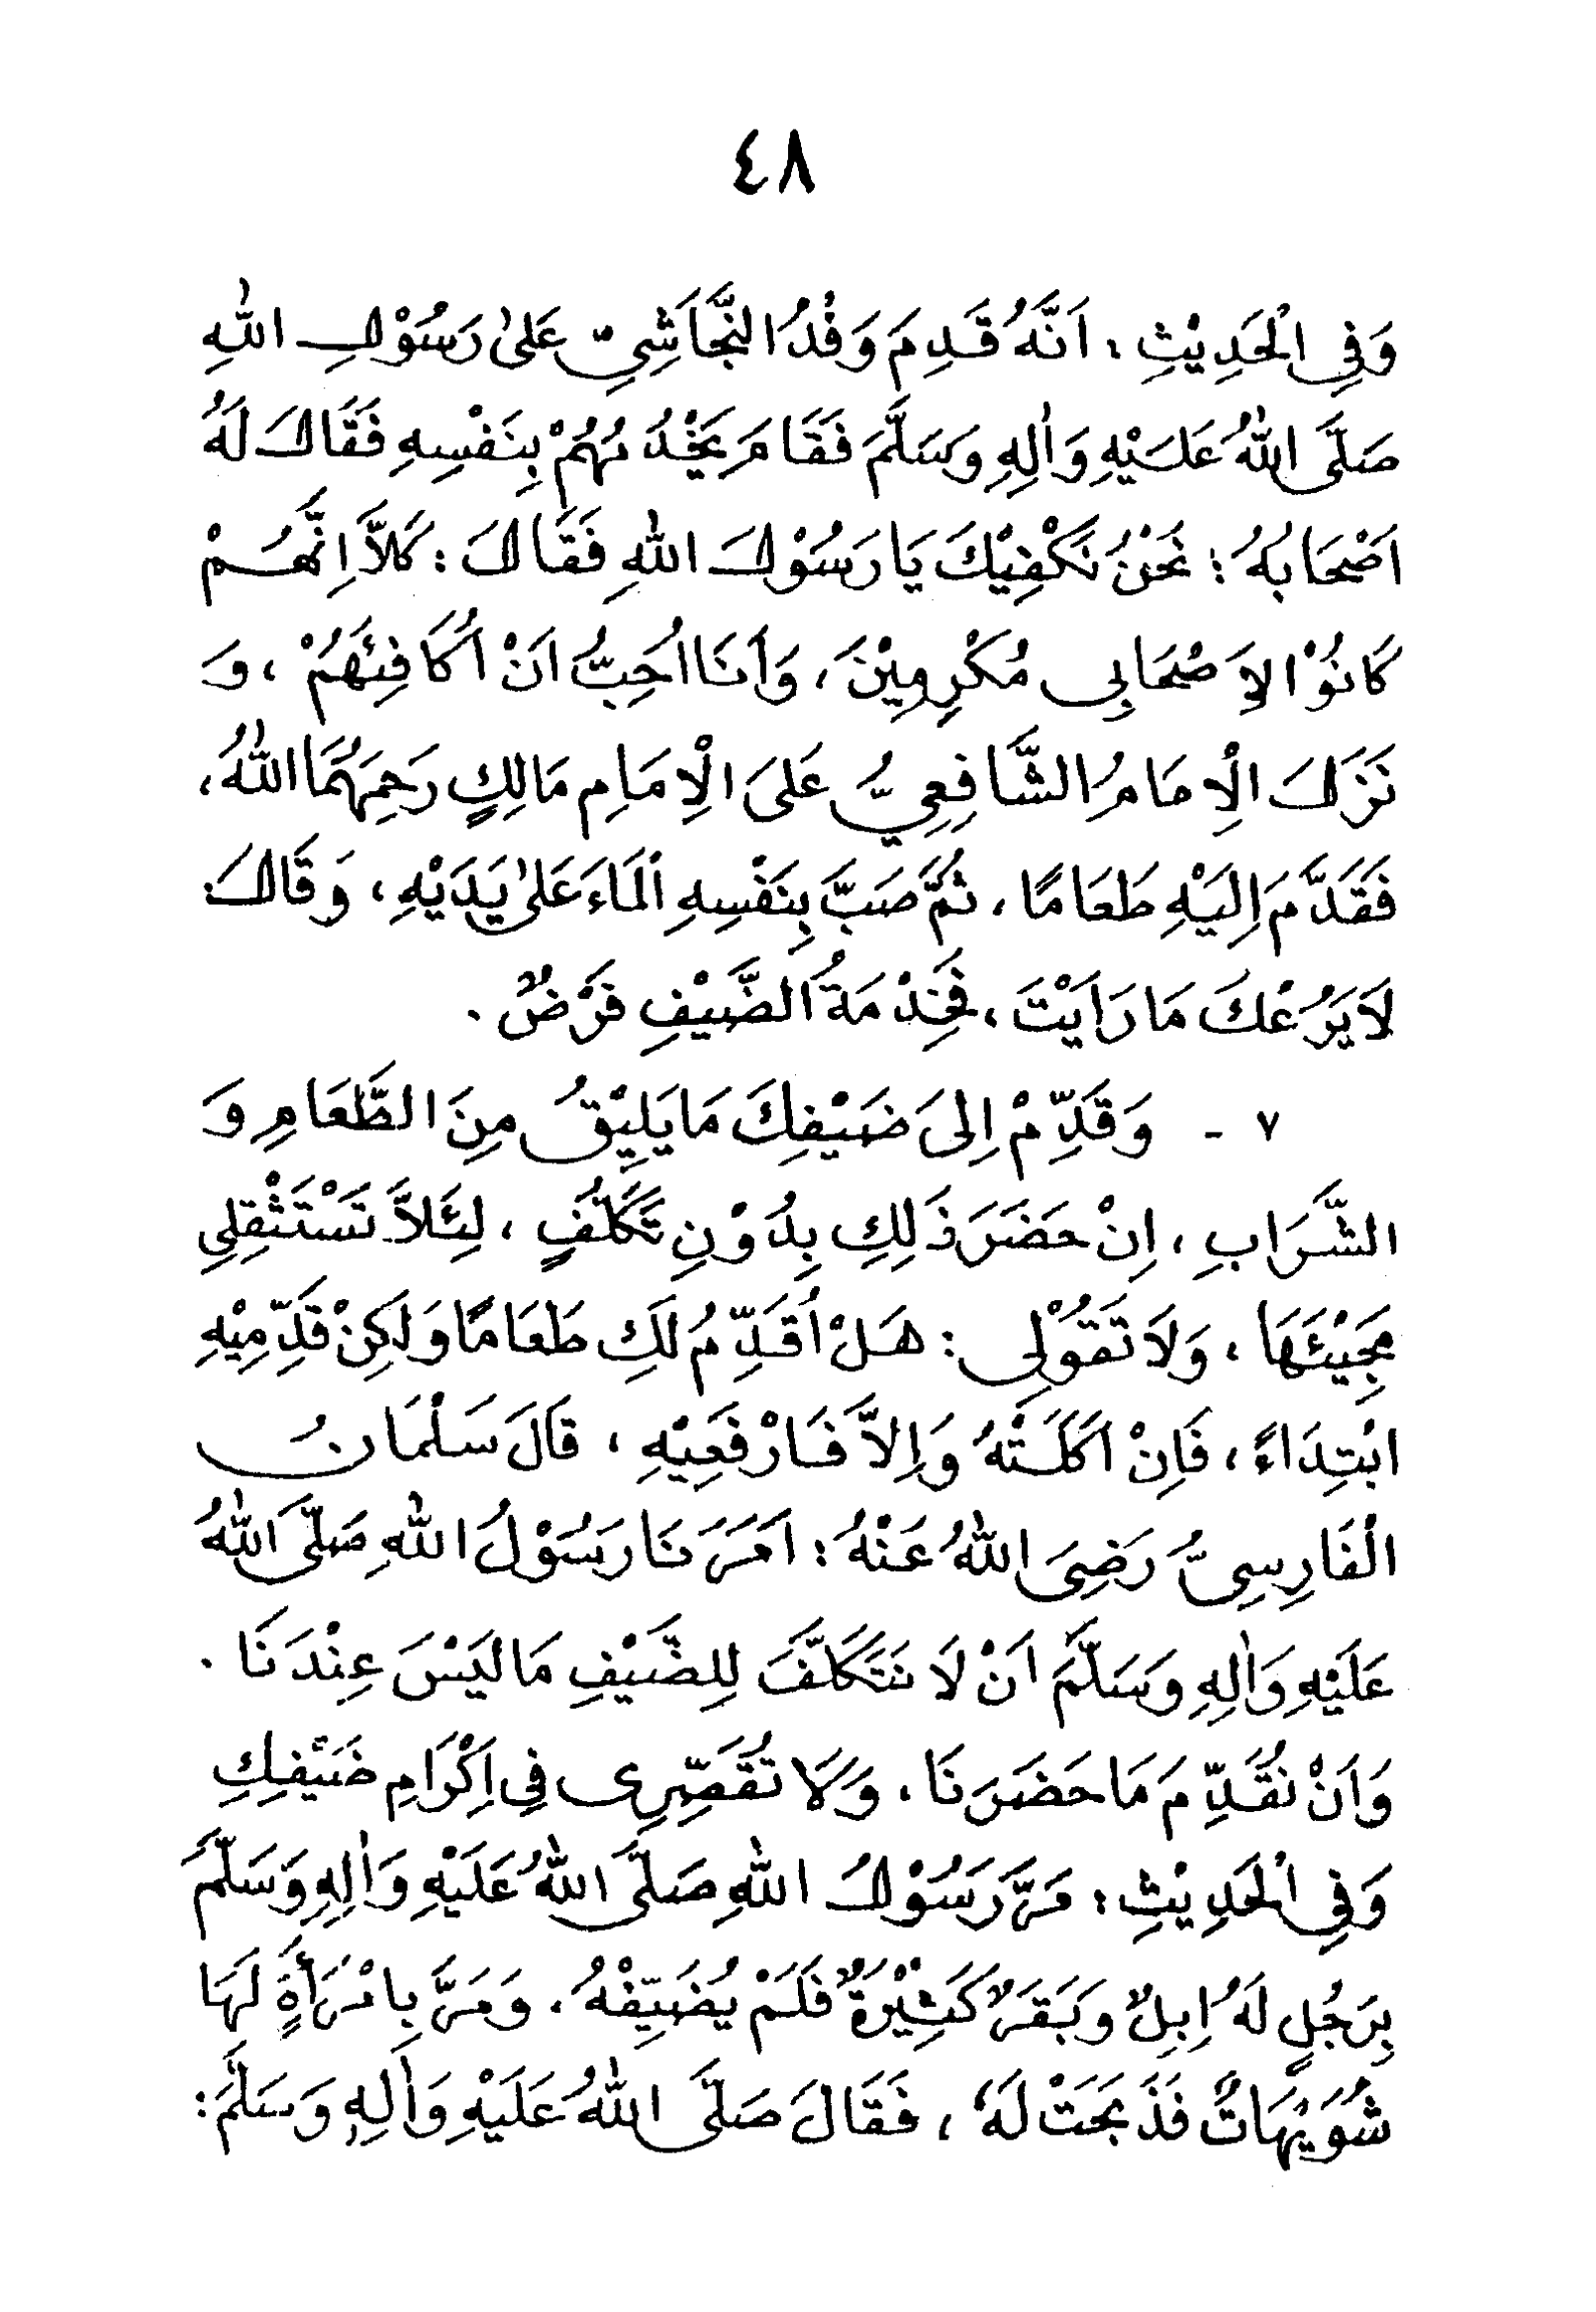 ٤٨
وَفِى الْحَدِيْثِ : اَنَّهُ قَدِمَ وَفْدُ النَّجَاشِىِّ عَلٰى رَسُوْلِ اللهِ
صَلَّى اللهُ عَلَيْهِ وَاٰلِهِ وَسَلَّمَ فَقَامَ يَخْدُمُهُمْ بِنَفْسِهِ فَقَالَ لَهُ
اَصْحَابُهُ : نَحْنُ نَكْفِيْكَ يَارَسُوْلَ اللهِ فَقَالَ : كَلاَّ اِنَّهُمْ
كَانُوْا لِاَصْحَابِى مُكْرِمِيْنَ ، وَاَنَا اُحِبُّ اَنْ اُكَافِئَهُمْ ، وَ
نَزَلَ الْاِمَامُ الشَّافِعِيُّ عَلَى الْاِمَامِ مَالِكٍ رَحِمَهُمَا اللهُ ،
فَقَدَّمَ اِلَيْهِ طَعَامًا ، ثُمَّ صَبَّ بِنَفْسِهِ الْمَاءَ عَلٰى يَدَيْهِ ، وَقَالَ :
لَا يَرُعْكَ مَا رَاَيْتَ ، فَخِدْمَةُ الضَّيْفِ فَرْضٌ .
٧ - وَقَدِّمْ اِلَى ضَيْفِكَ مَا يَلِيْقُ مِنَ الطَّعَامِ وَ
الشَّرَابِ ، اِنْ حَضَرَ ذَلِكِ بِدُوْنِ تَكَلُّفٍ ، لِئَلاَّ تَسْتَثْقِلِى
مَجِيْئَهَا ، وَلَا تَقُوْلِى : هَلْ اُقَدِّمُ لَكِ طَعَامًا وَلَكِنْ قَدِّمِيْهِ
ابْتِدَاءً ، فَاِنْ اَكَلَتْهُ وَاِلاَّ فَارْفَعِيْهِ ، قَالَ سَلْمَانُ
الْفَارِسِىُّ رَضِىَ اللهُ عَنْهُ : اَمَرَنَا رَسُوْلُ اللهِ صَلَّى اللهُ
عَلَيْهِ وَاٰلِهِ وَسَلَّمَ اَنْ لَا نَتَكَلَّفَ لِلضَّيْفِ مَا لَيْسَ عِنْدَنَا .
وَاَنْ نُقَدِّمَ مَا حَضَرَنَا . وَلَا تُقَصِّرِى فِى اِكْرَامِ ضَيْفِكِ
وَفِى الْحَدِيْثِ : مَرَّ رَسُوْلُ اللهِ صَلَّى اللهُ عَلَيْهِ وَاٰلِهِ وَسَلَّمَ
بِرَجُلٍ لَهُ اِبِلٌ وَبَقَرٌ كَثِيْرَةٌ فَلَمْ يُضَيِّفْهُ . وَمَرَّ بِامْرَأَةٍ لَهَا
شُوَيْهَاتٌ فَذَبَحَتْ لَهُ ، فَقَالَ صَلَّى اللهُ عَلَيْهِ وَاٰلِهِ وَسَلَّمَ :